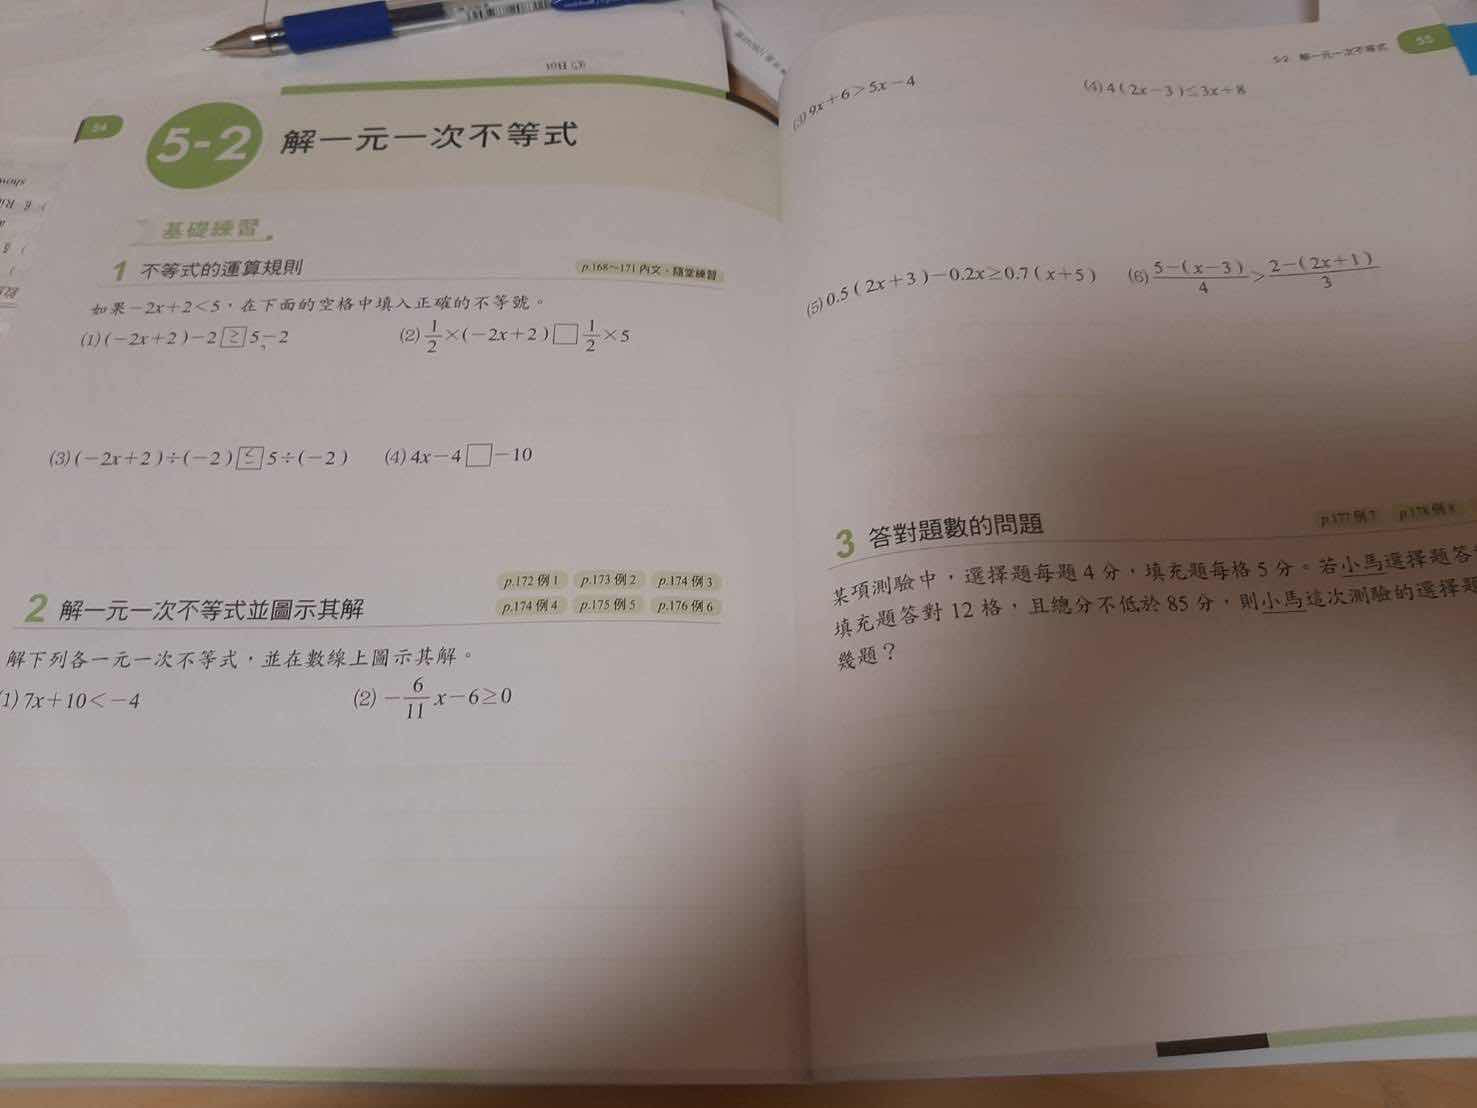 54
5-2 解一元一次不等式
基礎練習
1 不等式的運算規則 p.168~171 內文、隨堂練習
如果-2x+2<5,在下面的空格中填入正確的不等號。
(1)(-2x+2)-2 ≥ 5-2 (2) 1/2×(-2x+2)□1/2×5
(3)(-2x+2)÷(-2) ≤ 5÷(-2) (4) 4x-4□-10
2 解一元一次不等式並圖示其解 p.172 例1 p.173 例2 p.174 例3
p.174 例4 p.175 例5 p.176 例6
解下列各一元一次不等式,並在數線上圖示其解。
(1) 7x+10<-4 (2) -6/11 x-6≥0
5-2 解一元一次不等式 55
(3) 9x+6>5x-4 (4) 4(2x-3)≤3x+8
(5) 0.5(2x+3)-0.2x≥0.7(x+5) (6) 5-(x-3)/4 > 2-(2x+1)/3
3 答對題數的問題 p.177 例7 p.178 例8
某項測驗中,選擇題每題4分,填充題每格5分。若小馬選擇題答
填充題答對12格,且總分不低於85分,則小馬這次測驗的選擇題
幾題?